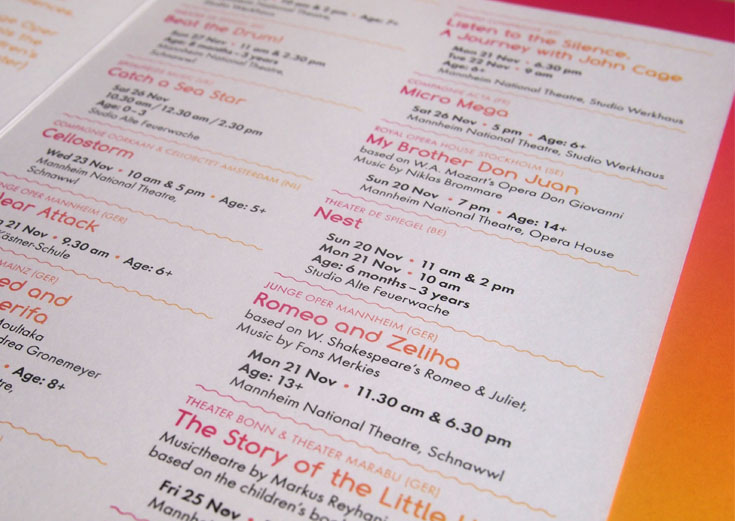 ences.
Oper
Mannheim National Theatre,
Studio Werkhaus
Beat the Drum!
Sun 27 Nov • 11 am & 2.30 pm
Age: 6 months – 3 years
Mannheim National Theatre,
Studio Werkhaus
Catch a Sea Star
Sat 26 Nov
10.30 am / 12.30 am / 2.30 pm
Age: 0–3
Studio Alte Feuerwache
COMPAGNIE OORKAAN & CELLOOCTET AMSTERDAM (NL)
Cellostorm
Wed 23 Nov • 10 am & 5 pm • Age: 5+
Mannheim National Theatre,
Schnawwl
JUNGE OPER MANNHEIM (GER)
Near Attack
21 Nov • 9.30 am • Age: 6+
Kästner-Schule
MAINZ (GER)
ed and
erifa
Moultaka
drea Gronemeyer
• Age: 8+
Listen to the Silence.
A Journey with John Cage
Mon 21 Nov • 6.30 pm
Tue 22 Nov • 9 am
Age: 6+
Mannheim National Theatre, Studio Werkhaus
COMPAGNIE ACTA (FR)
Micro Mega
Sat 26 Nov • 5 pm • Age: 6+
Mannheim National Theatre, Studio Werkhaus
ROYAL OPERA HOUSE STOCKHOLM (SE)
My Brother Don Juan
based on W.A. Mozart's Opera Don Giovanni
Music by Niklas Brommare
Sun 20 Nov • 7 pm • Age: 14+
Mannheim National Theatre, Opera House
THEATER DE SPIEGEL (BE)
Nest
Sun 20 Nov • 11 am & 2 pm
Mon 21 Nov • 10 am
Age: 6 months – 3 years
Studio Alte Feuerwache
JUNGE OPER MANNHEIM (GER)
Romeo and Zeliha
based on W. Shakespeare's Romeo & Juliet,
Music by Fons Merkies
Mon 21 Nov • 11.30 am & 6.30 pm
Age: 13+
Mannheim National Theatre, Schnawwl
THEATER BONN & THEATER MARABU (GER)
The Story of the Little
Musictheatre by Markus Reyhani
based on the children's book
Fri 25 Nov •
Mannheim